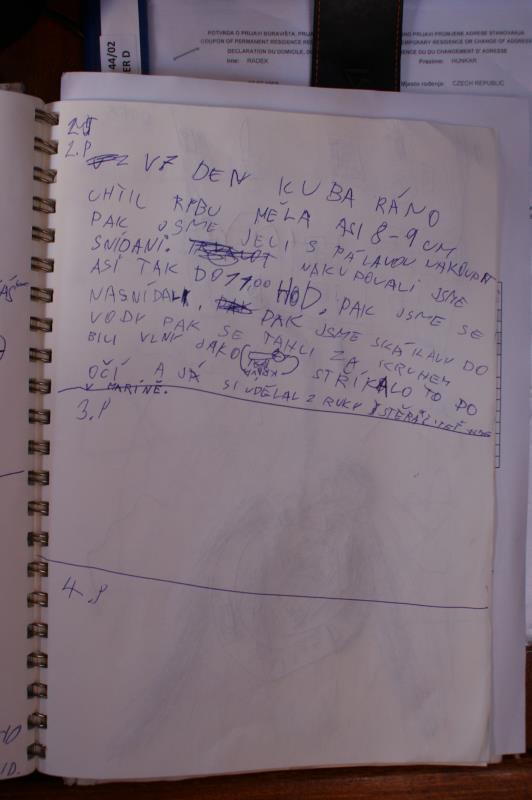 44/02
POTVRDA O PRIJAVI BORAVIŠTA, P
COUPON OF PERMANENT RESIDENCE OR
DECLARATION DU DOMICILE, DU
Ime: RADEK
NO PRIJAVI PROMJENE ADRESE STANOVANJA
TEMPORARY RESIDENCE OR CHANGE OF ADDRESS
DU CHANGEMENT D'ADRESSE
Prezime: HUNKAR
Mjesto rođenja: CZECH REPUBLIC
2.P
VŽ DEN KUBA RÁNO
CHŤIL RYBU MĚLA ASI 8-9 CM
PAK JSME JELI S PÁLAVOU NAKOUPIT
SNÍDANI. NAKUPOVALI JSME
ASI TAK DO 11,00 HOD. PAK JSME SE
NASNÍDALI, PAK JSME SKÁKALI DO
VODY PAK SE TAHLI ZA KRUHEM
BILI VLNY JAKO STŘÍKALO TO DO
OČÍ A JÁ SI UDĚLAL Z RUKY STĚRAČ
V MARÍNĚ.
3.P
4.P